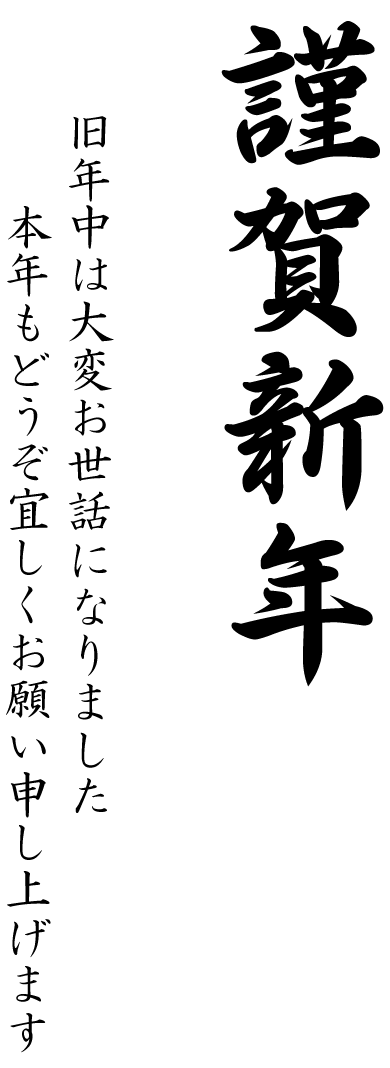 謹賀新年
旧年中は大変お世話になりました
本年もどうぞ宜しくお願い申し上げます